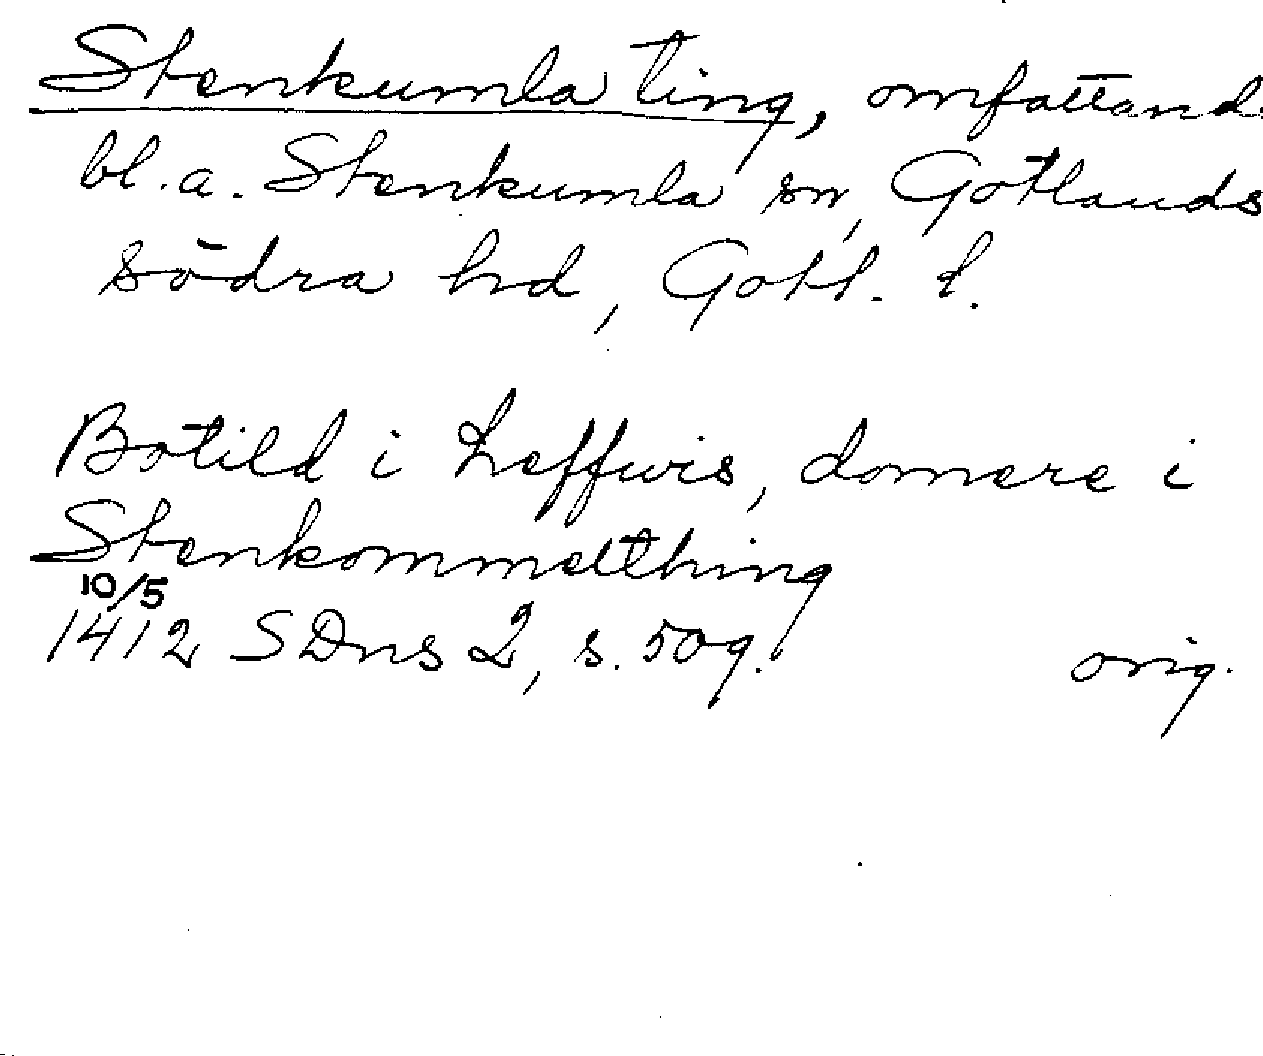 Stenkumla ting, omfattand
bl.a. Stenkumla sn, Gotlands
södra hd, Gotl. l.
Botild i Leffwis, domere i
Stenkommelthing
10/5
1412 SDns 2, s. 509. orig.